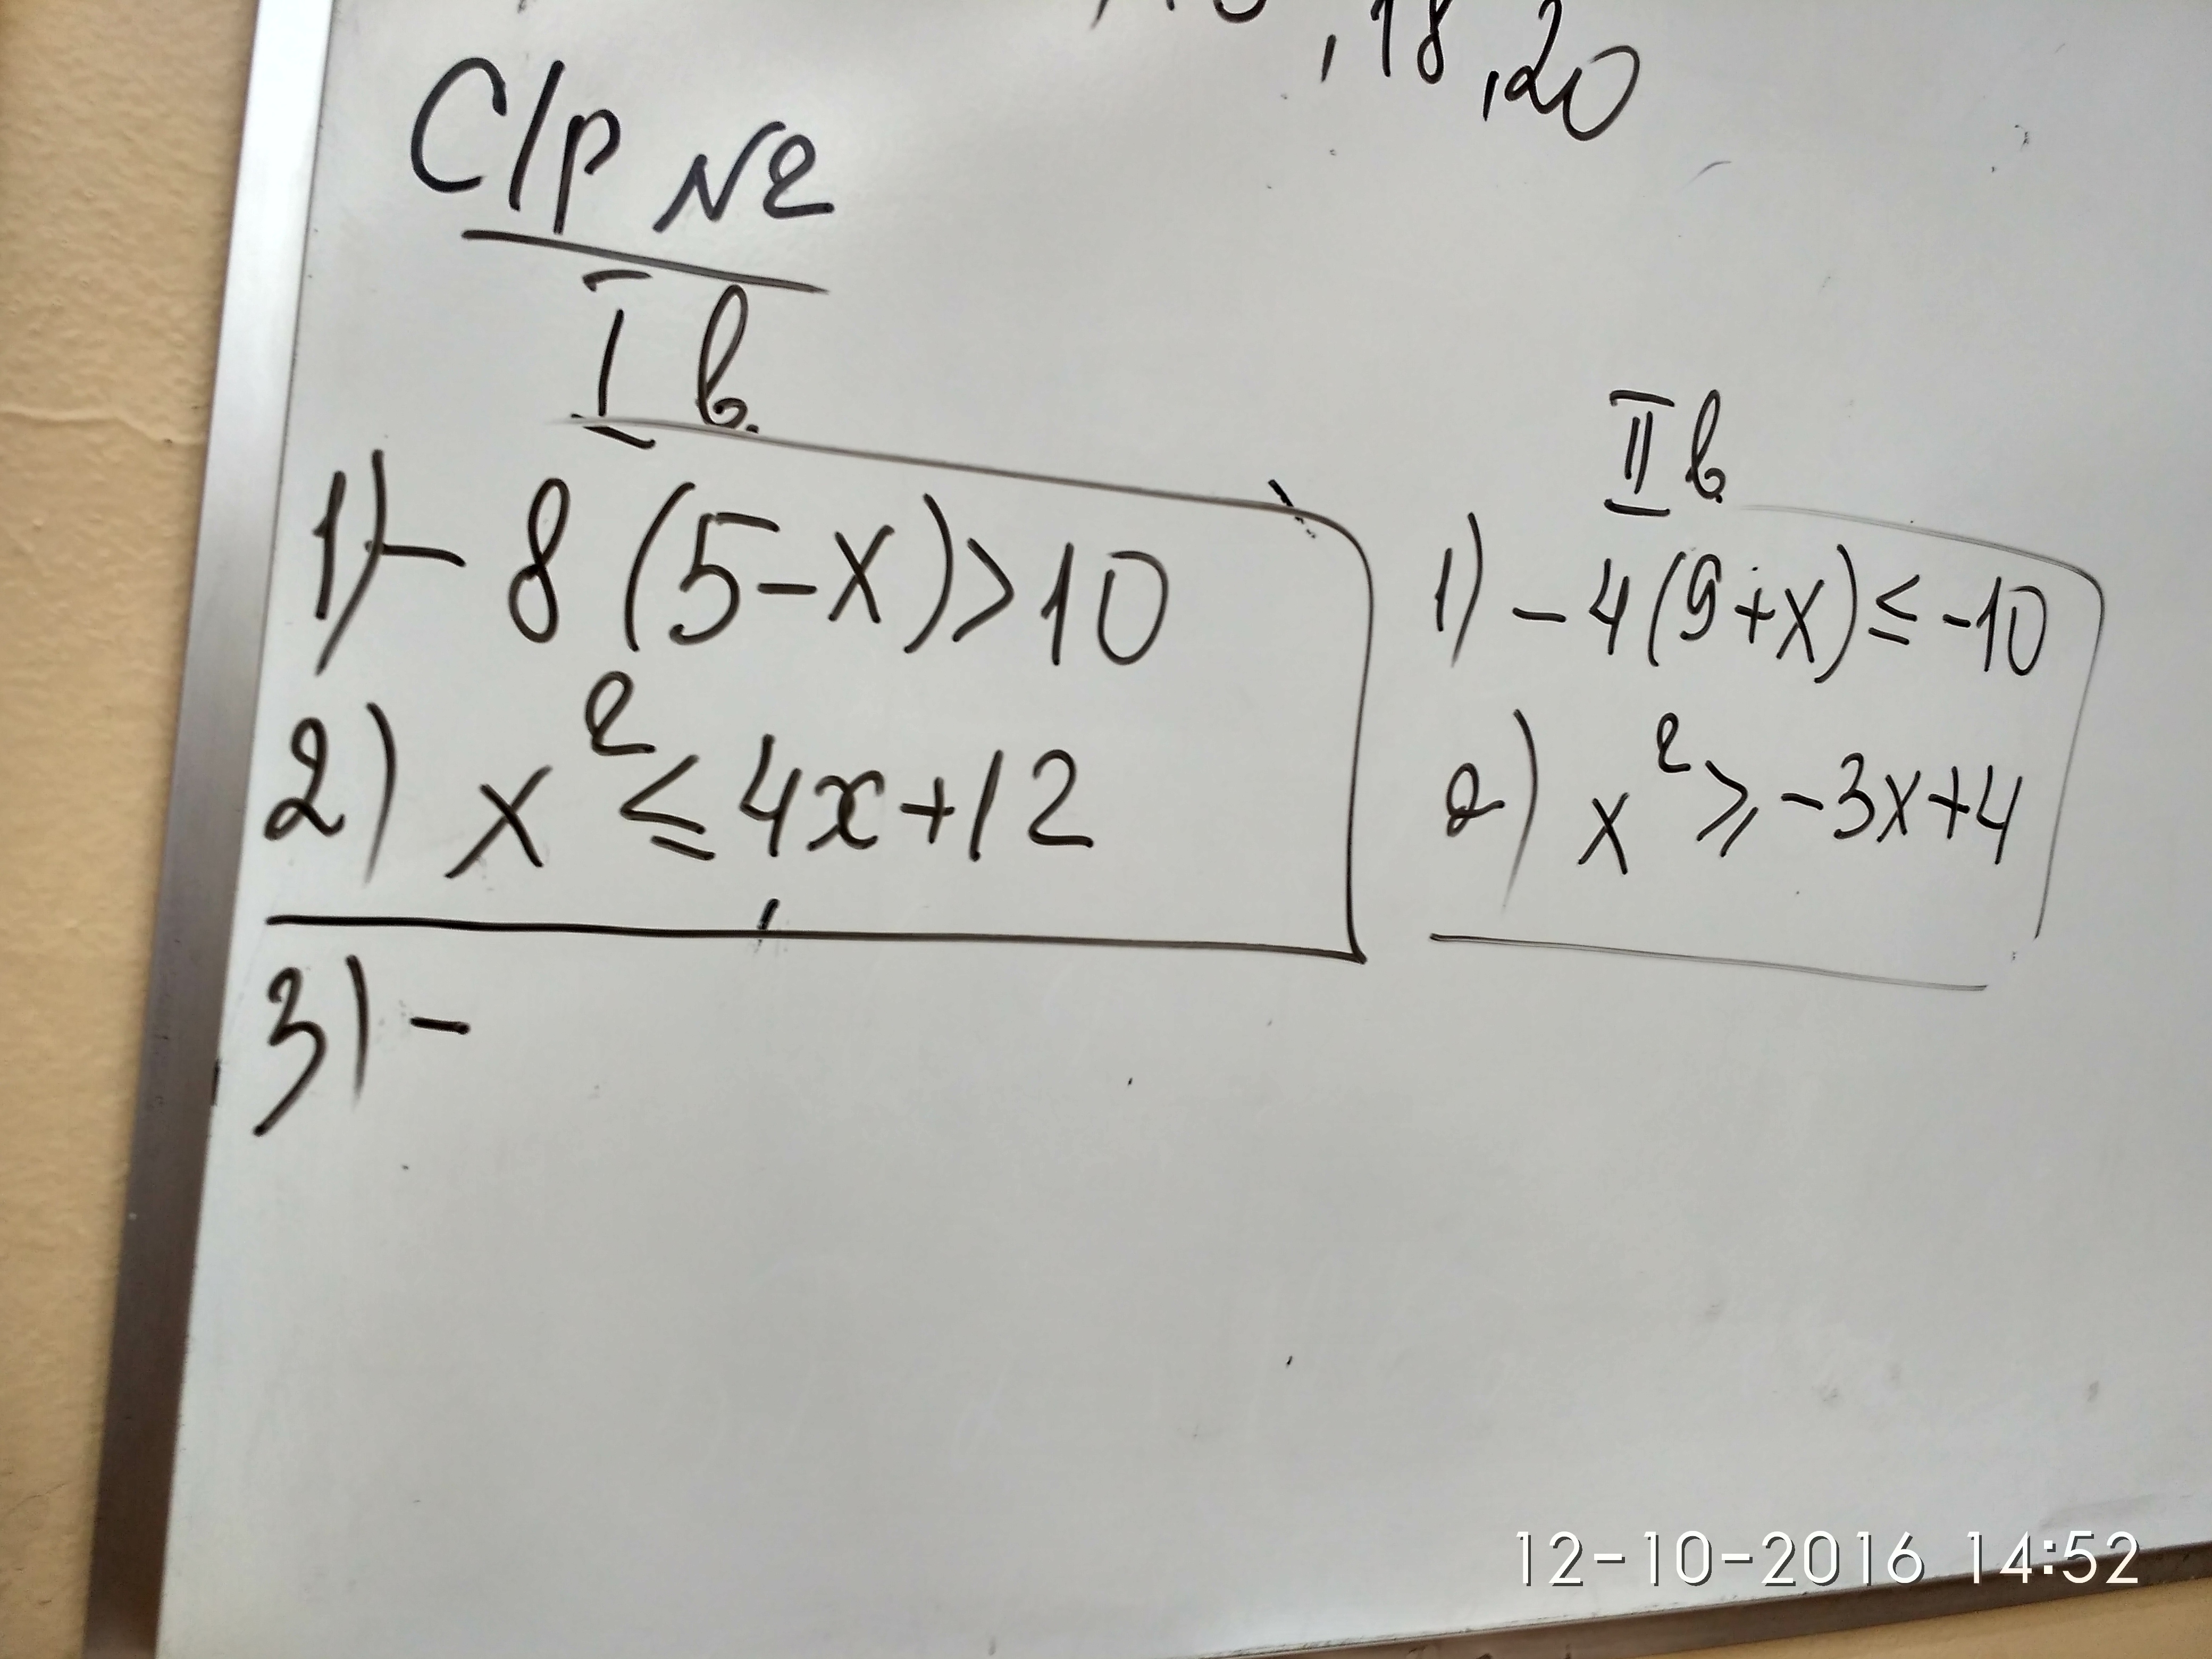 ,18,20
С/р №2
I в.
1) - 8(5-x)>10
2) x² ≤ 4x+12
3) -
II в.
1) - 4(9+x) ≤ -10
2) x² ⩾ -3x+4
12-10-2016 14:52